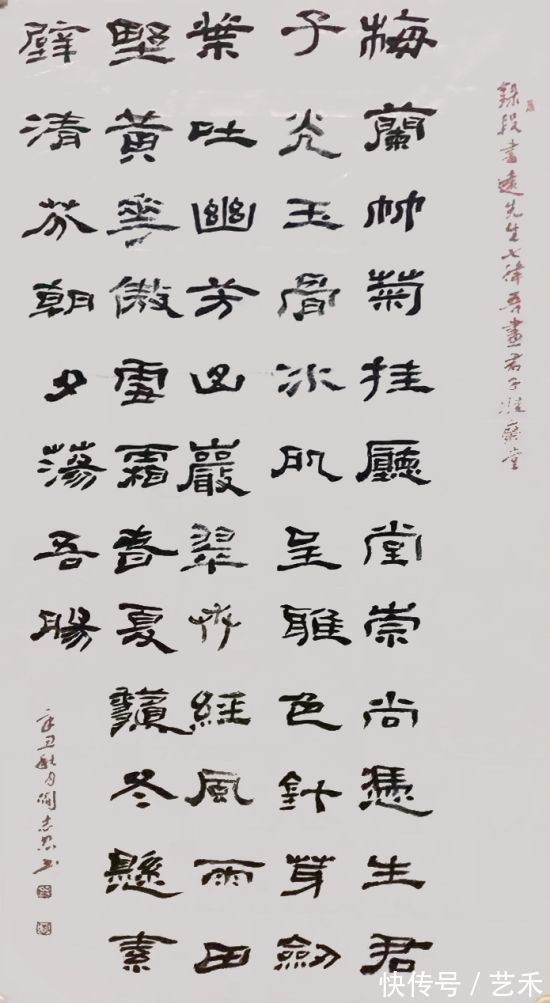 錄段書遠先生七律吾畫君子挂廳堂
梅蘭竹菊挂廳堂崇尚憑生君
子光玉骨冰肌呈雅色針芽劍
葉吐幽芳山巖翠竹經風雨田
野黃華傲雪霜春夏龝冬懸素
壁清芬朝夕蕩吾腸
辛丑秋月志書
快传号／艺禾